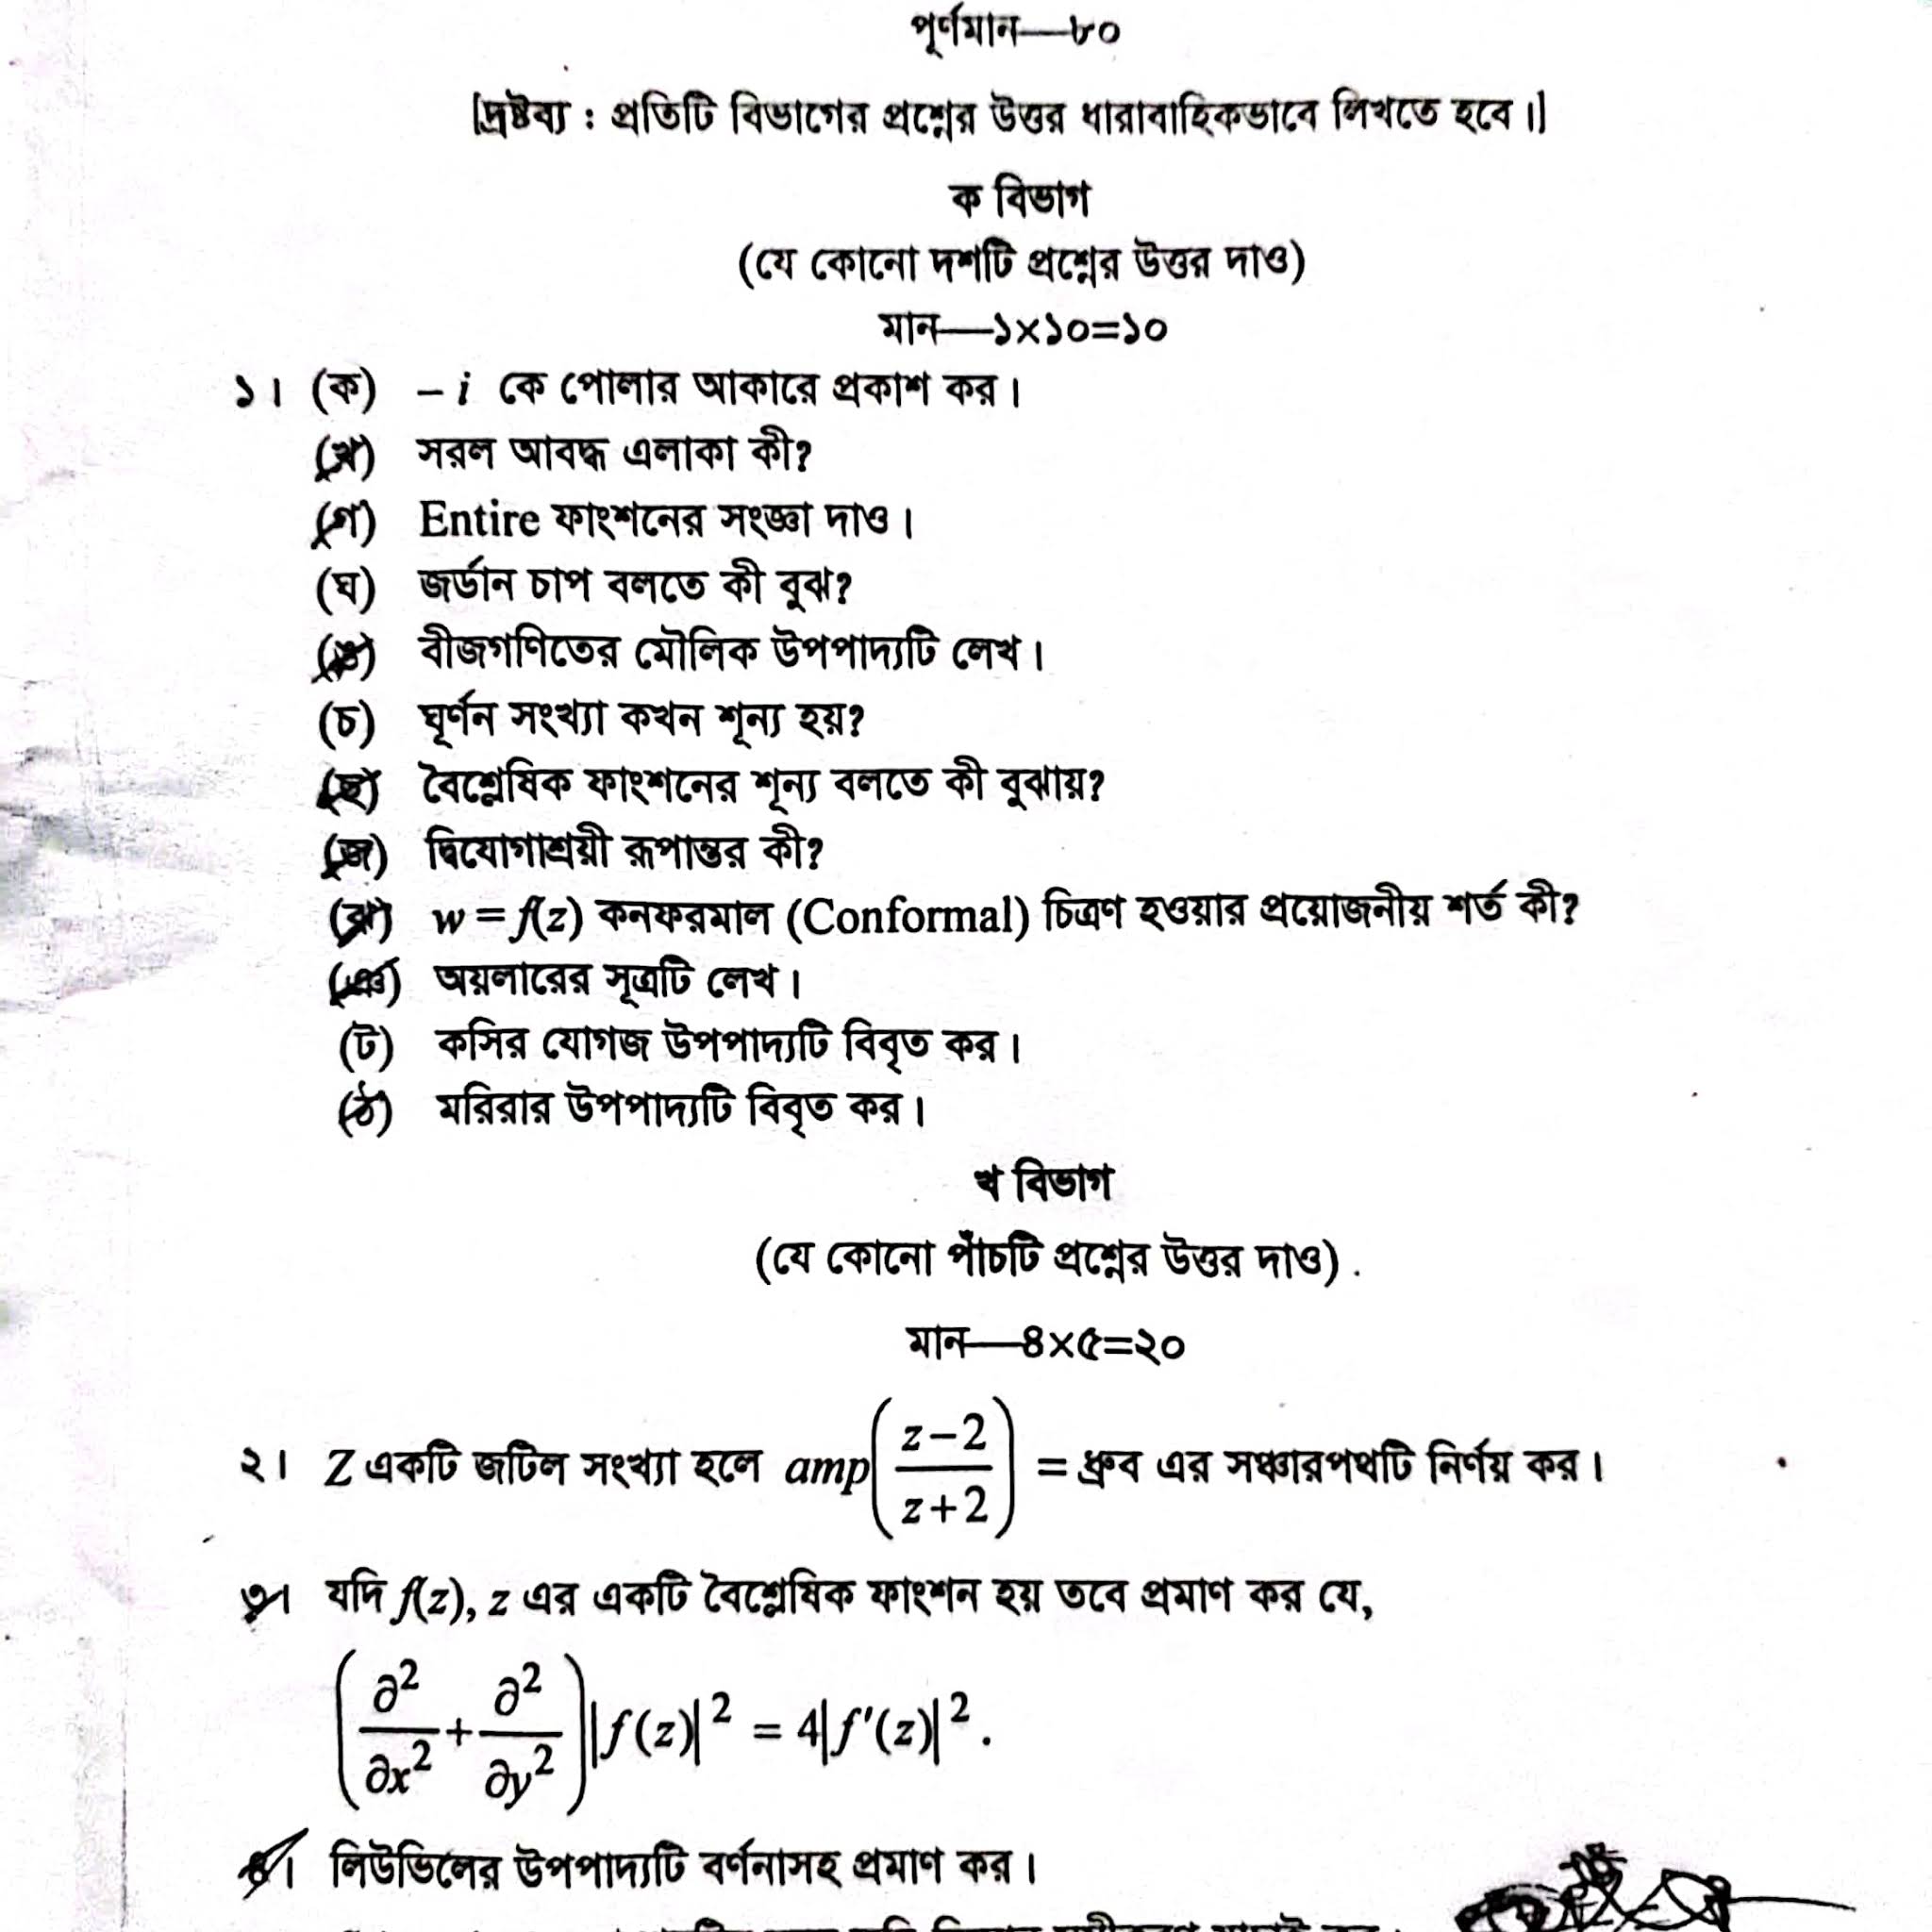 পূর্ণমান—৮০
[দ্রষ্টব্য : প্রতিটি বিভাগের প্রশ্নের উত্তর ধারাবাহিকভাবে লিখতে হবে।]
ক বিভাগ
(যে কোনো দশটি প্রশ্নের উত্তর দাও)
মান—১×১০=১০
১। (ক) – i কে পোলার আকারে প্রকাশ কর।
(খ) সরল আবদ্ধ এলাকা কী?
(গ) Entire ফাংশনের সংজ্ঞা দাও।
(ঘ) জর্ডান চাপ বলতে কী বুঝ?
(ঙ) বীজগণিতের মৌলিক উপপাদ্যটি লেখ।
(চ) ঘূর্ণন সংখ্যা কখন শূন্য হয়?
(ছ) বৈশ্লেষিক ফাংশনের শূন্য বলতে কী বুঝায়?
(জ) দ্বিযোগাশ্রয়ী রূপান্তর কী?
(ঝ) w = f(z) কনফরমাল (Conformal) চিত্রণ হওয়ার প্রয়োজনীয় শর্ত কী?
(ঞ) অয়লারের সূত্রটি লেখ।
(ট) কসির যোগজ উপপাদ্যটি বিবৃত কর।
(ঠ) মরিরার উপপাদ্যটি বিবৃত কর।
খ বিভাগ
(যে কোনো পাঁচটি প্রশ্নের উত্তর দাও)
মান—৪×৫=২০
২। Z একটি জটিল সংখ্যা হলে amp((z−2)/(z+2)) = ধ্রুব এর সঞ্চারপথটি নির্ণয় কর।
৩। যদি f(z), z এর একটি বৈশ্লেষিক ফাংশন হয় তবে প্রমাণ কর যে,
(∂²/∂x² + ∂²/∂y²)|f(z)|² = 4|f′(z)|².
৪। লিউভিলের উপপাদ্যটি বর্ণনাসহ প্রমাণ কর।